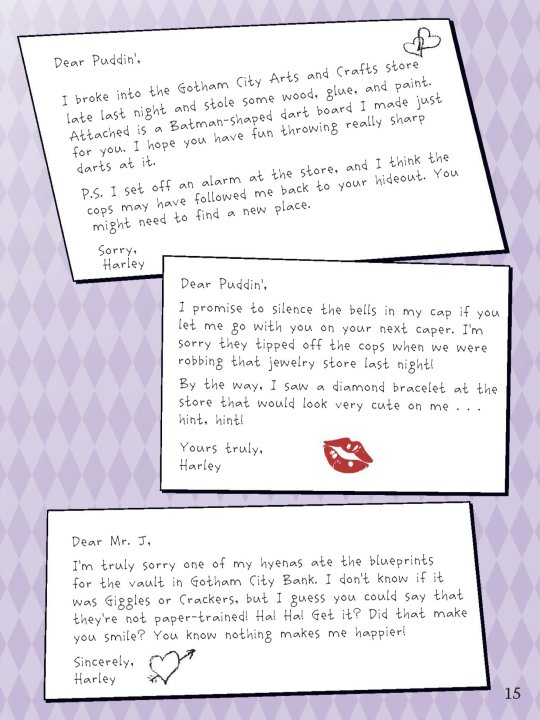 Dear Puddin',
I broke into the Gotham City Arts and Crafts store
late last night and stole some wood, glue, and paint.
Attached is a Batman-shaped dart board I made just
for you. I hope you have fun throwing really sharp
darts at it.
P.S. I set off an alarm at the store, and I think the
cops may have followed me back to your hideout. You
might need to find a new place.
Sorry,
Harley
Dear Puddin',
I promise to silence the bells in my cap if you
let me go with you on your next caper. I'm
sorry they tipped off the cops when we were
robbing that jewelry store last night!
By the way, I saw a diamond bracelet at the
store that would look very cute on me . . .
hint, hint!
Yours truly,
Harley
Dear Mr. J,
I'm truly sorry one of my hyenas ate the blueprints
for the vault in Gotham City Bank. I don't know if it
was Giggles or Crackers, but I guess you could say that
they're not paper-trained! Ha! Ha! Get it? Did that make
you smile? You know nothing makes me happier!
Sincerely,
Harley
15